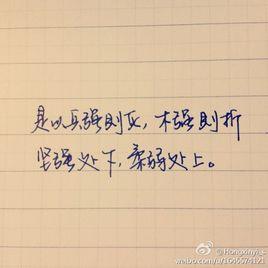 是以兵强则灭，木强则折
坚强处下，柔弱处上。
@Hongxinyu_
weibo.com/u/1646574121